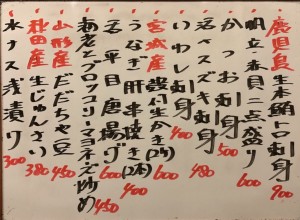 鹿児島 生本鮪トロ刺身 900
帆立・赤貝二点盛り 600
かつお刺身 500
活〆スズキ刺身 480
いわし刺身 400
宮城産 殻付生かき(2ケ) 600
うなぎ肝串焼き(2本) 400
活〆平目唐揚げ 600
海老とブロッコリーマヨネーズ炒め 450
山形産 だだちゃ豆 450
秋田産 生じゅんさい 380
水ナス浅漬け 300